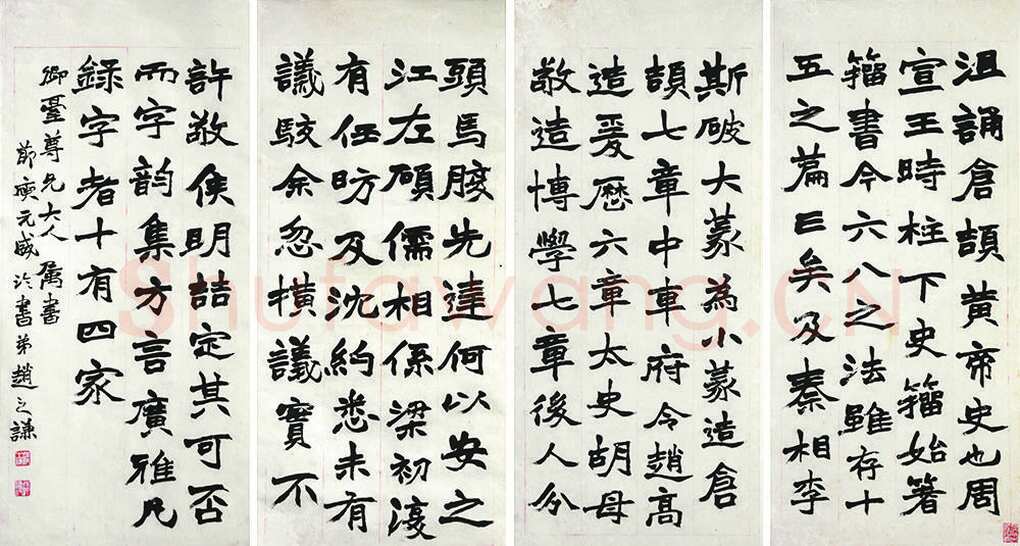 沮誦倉頡黃帝史也周
宣王時柱下史籀始著
籀書今六八之法雖存十
五之篇亡矣及秦相李
斯破大篆為小篆造倉
頡七章中車府令趙高
造爰歷六章太史胡母
敬造博學七章後人分
頭馬腹先達何以安之
江左碩儒相係梁初復
有任昉及沈約悉未有
議駭余忽橫議實不
許敬侯明喆定其可否
而字韵集方言廣雅凡
録字者十有四家
御臺尊兄大人 属書
節庾元威論書 弟趙之謙
Shufawang.CN